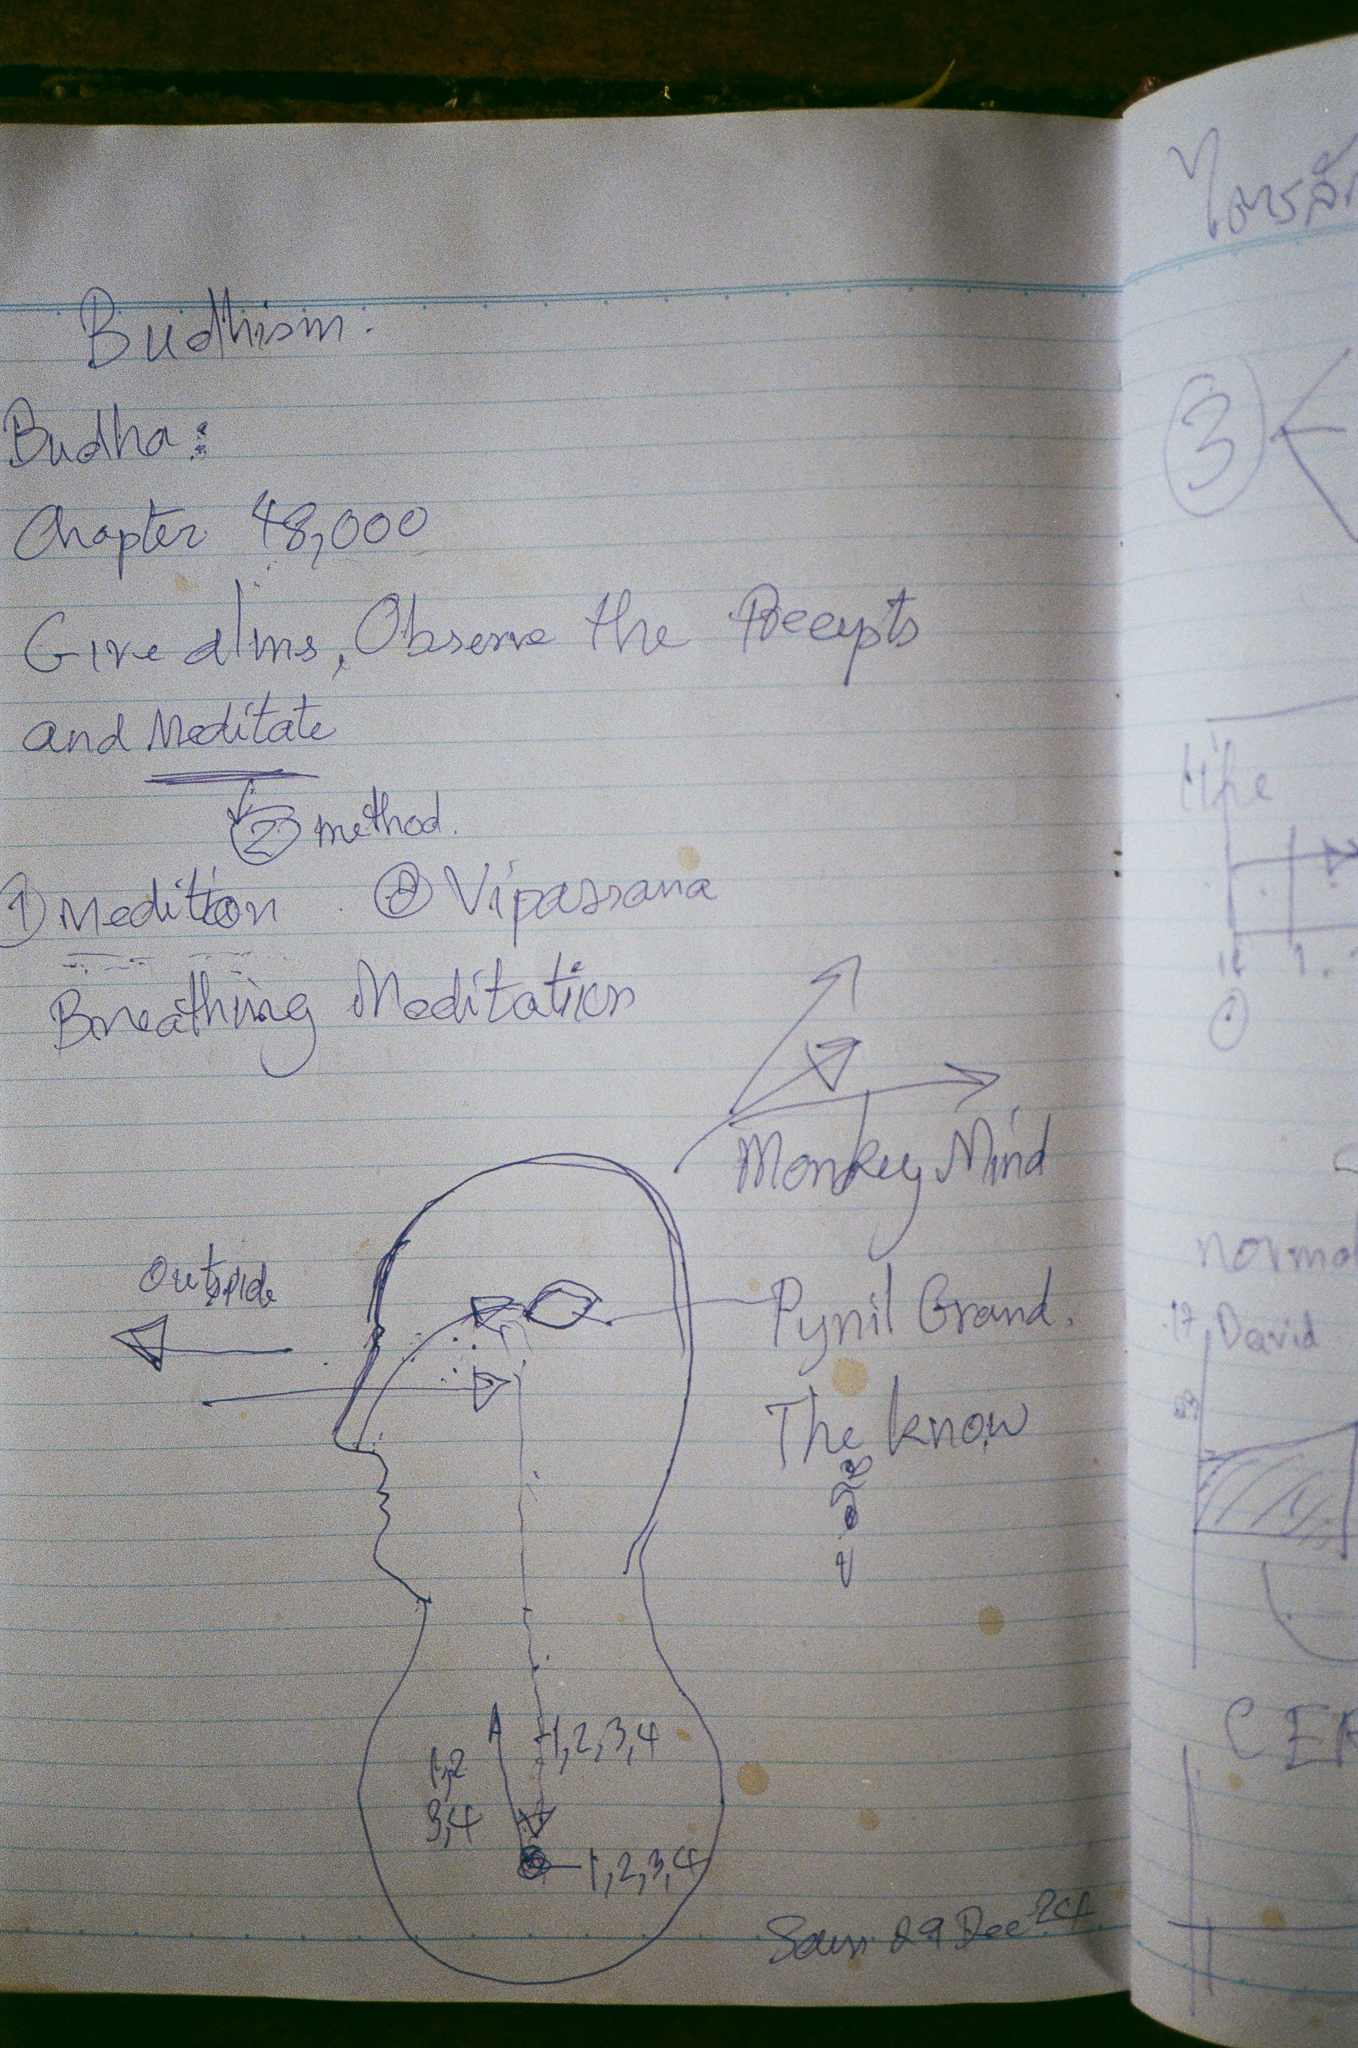 Budhism.
Budha:
Chapter 48,000
Give alms, Observe the Precepts
and Meditate
② method.
① Medition ② Vipassana
Breathing Meditation
Monkey Mind
Outside
Pynil Grand.
The know
1,2,3,4
1,2
3,4
1,2,3,4
29 Dec
ไตรลั
③
life
normal
David
CER